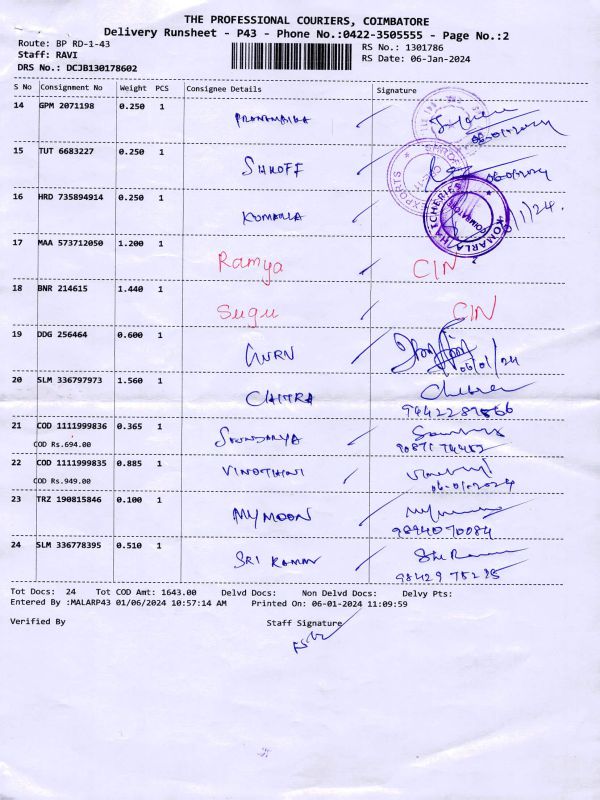 THE PROFESSIONAL COURIERS, COIMBATORE
Delivery Runsheet - P43 - Phone No.:0422-3505555 - Page No.:2
Route: BP RD-1-43
Staff: RAVI
DRS No.: DCJB130178602
RS No.: 1301786
RS Date: 06-Jan-2024
S No Consignment No Weight PCS Consignee Details Signature
14 GPM 2071198 0.250 1 PRANAMBIKA
06-01-2024
15 TUT 6683227 0.250 1
06-01-2024
EXPORTS
16 HRD 735894914 0.250 1 KOMARLA
KOMARLA HATCHERIES
COIMBATORE
/1/24.
17 MAA 573712050 1.200 1 Ramya CIN
18 BNR 214615 1.440 1 Sugu CIN
19 DDG 256464 0.600 1
06/01/24
20 SLM 336797973 1.560 1 CHITRA
21 COD 1111999836 0.365 1 SOUNDARYA
COD Rs.694.00
22 COD 1111999835 0.885 1 VINOTHINI
COD Rs.949.00
06-01-2024
23 TRZ 190815846 0.100 1 MYMOON
9894070084
24 SLM 336778395 0.510 1 SRI RAMAN
Tot Docs: 24 Tot COD Amt: 1643.00 Delvd Docs: Non Delvd Docs: Delvy Pts:
Entered By :MALARP43 01/06/2024 10:57:14 AM Printed On: 06-01-2024 11:09:59
Verified By Staff Signature